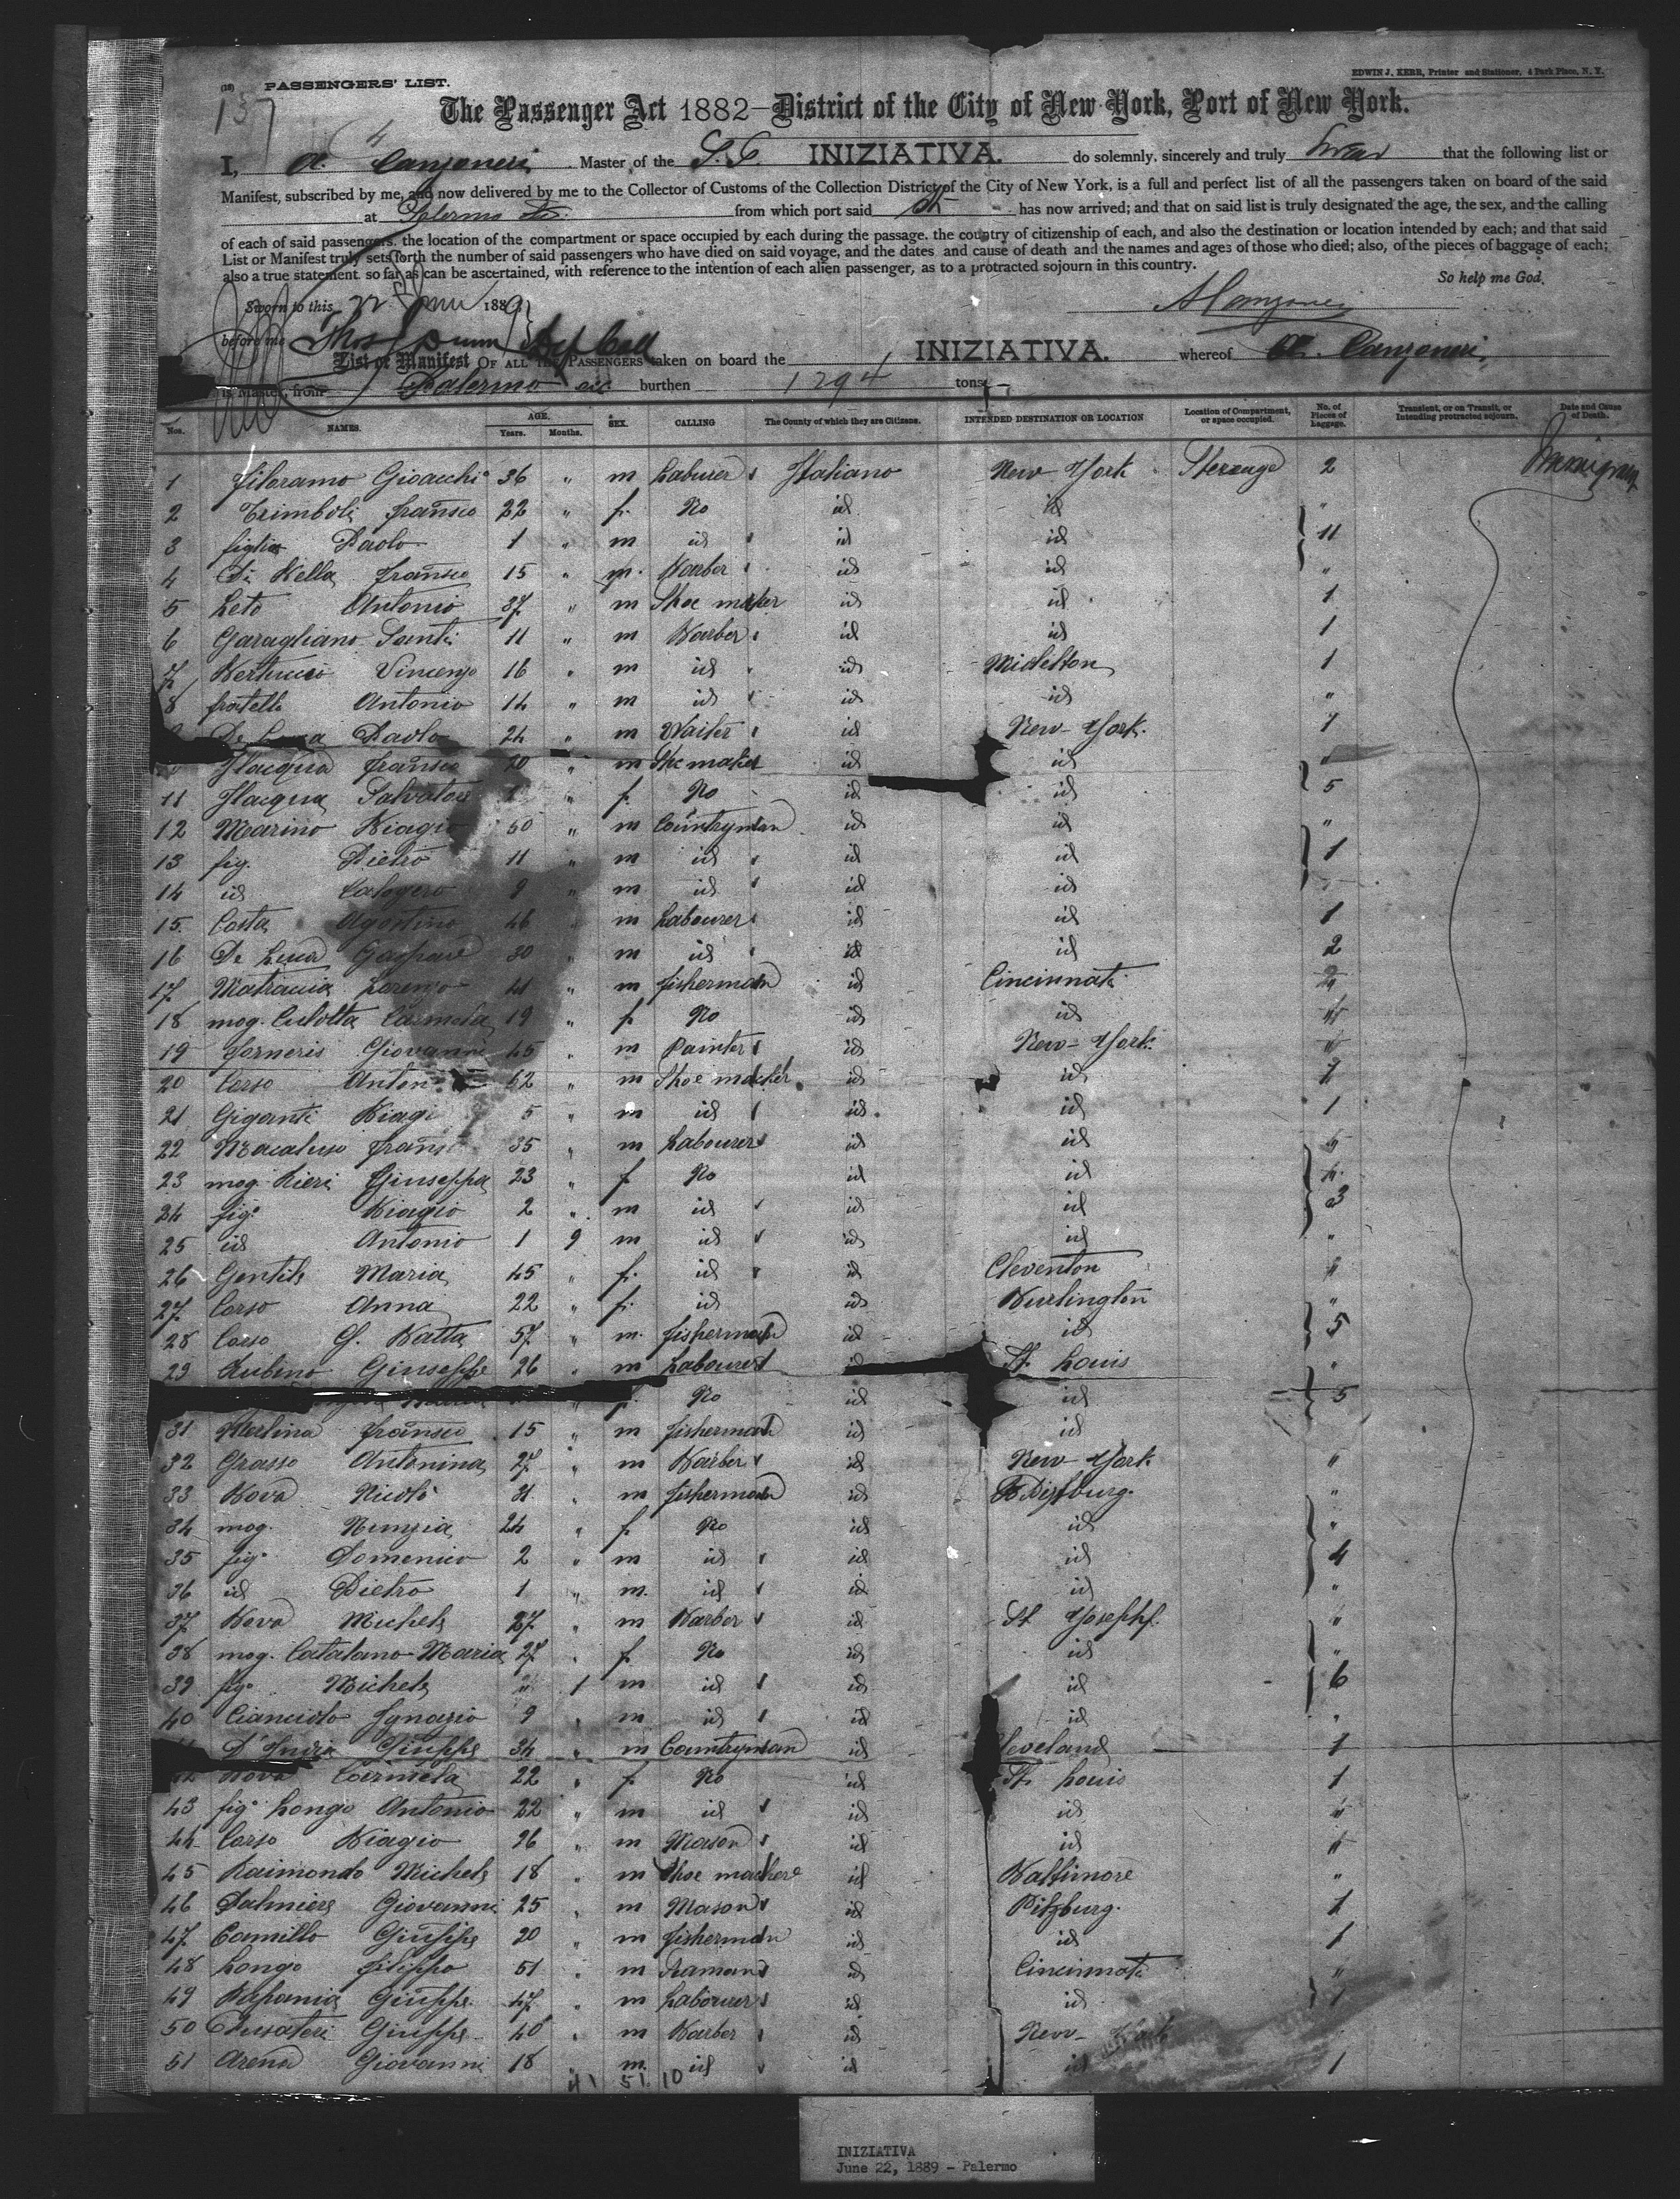 (18) PASSENGERS' LIST.
EDWIN J. KERR, Printer and Stationer, 4 Park Place, N. Y.
137
The Passenger Act 1882—District of the City of New York, Port of New York.
I, A. Canzoneri Master of the S.S. INIZIATIVA. do solemnly, sincerely and truly Swear that the following list or
Manifest, subscribed by me, and now delivered by me to the Collector of Customs of the Collection District of the City of New York, is a full and perfect list of all the passengers taken on board of the said
at Palermo from which port said has now arrived; and that on said list is truly designated the age, the sex, and the calling
of each of said passengers. the location of the compartment or space occupied by each during the passage. the country of citizenship of each, and also the destination or location intended by each; and that said
List or Manifest truly sets forth the number of said passengers who have died on said voyage, and the dates and cause of death and the names and ages of those who died; also, of the pieces of baggage of each;
also a true statement. so far as can be ascertained, with reference to the intention of each alien passenger, as to a protracted sojourn in this country.
So help me God.
Sworn to this 22 June 1889
A Canzoneri
before me Thos Dunn Dep Coll
List or Manifest OF ALL THE PASSENGERS taken on board the INIZIATIVA. whereof A. Canzoneri
is Master, from Palermo burthen 1294 tons
Nos. NAMES. AGE. Years. Months. SEX. CALLING The County of which they are Citizens. INTENDED DESTINATION OR LOCATION Location of Compartment, or space occupied. No. of Pieces of Luggage. Transient, or on Transit, or Intending protracted sojourn. Date and Cause of Death.
1 Gioacchi 36 " m Laburer Italiano New York Sterauge 2
2 Trimboli Fransco 22 " f. No id id "
3 figlia Paolo 1 " m id id id 11
4 Di Bella Fransco 15 " m. Barber id id "
5 Leto Antonio 37 " m Shoe maker id id 1
6 Garagliano Santi 11 " m Barber id id 1
7 Bertucci Vincenzo 16 " m id id Midelton 1
8 fratello Antonio 14 " m id id id "
De Luca Paolo 24 " m Waiter id New-York. 1
Ilacqua Fransco 20 " m Shoe maker id id "
11 Ilacqua Salvatore " f. No id id 5
12 Marino Biagio 50 " m Countryman id id "
13 fig. Pietro 11 " m id id id 1
14 id Calogero 9 " m id id id
15. Costa Agostino 46 " m Labourer id id 1
16 De Luca Gaspare 30 " m id id id 2
17 Matracia Lorenzo 41 " m fisherman id Cincinnati
18 mog. Culotta Carmela 19 " f. No id id
19 Forneris Giovanni 45 " m Painter id New-York.
20 Corso Anton 52 " m Shoe macher id id 1
21 Giganti Biagi 5 " m id id id 1
22 Macaluso Frans 35 " m Labourer id id
23 mog. Rieri Giuseppa 23 " f No id id
24 fig.o Biagio 2 " m id id id 3
25 id Antonio 1 9 m id id id "
26 Gentile Maria 45 " f. id id Cleventon
27 Corso Anna 22 " f. id id Burlington "
28 Corso G. Batta 57 " m. fisherman id id 5
29 Rubino Giuseppe 26 " m Labourer id St. Louis "
No id id 5
31 Merlina Fransco 15 " m fisherman id id
32 Grasso Antonina 27 " m Barber id New York "
33 Bova Nicolò 31 " m fisherman id "
34 mog. Nunzia 24 " f No id id "
35 fig.o Domenico 2 " m id id id 4
36 id Pietro 1 " m. id id id "
37 Bova Michele 27 " m Barber id St Yoseppf. "
38 mog. Catalano Maria 27 " f No id id "
39 fig.o Michele " 1 m id id id 6
40 Cianciolo Ignazio 9 " m id id id "
D'India Giuseppe 34 " m Countryman id Cleveland 1
42 Bova Carmela 22 " f. No id St. Louis 1
43 fig.o Longo Antonio 22 " m id id id
44 Corso Biagio 26 " m Mason id id
45 Raimondo Michele 18 " m Shoe machere id Baltimore "
46 Palmiere Giovanni 25 " m Mason id Pitzburg. 1
47 Camillo Giuseppe 20 " m fisherman id id 1
48 Longo Filippo 51 " m id Cincinnati "
49 Giuseppe 47 " m Labourer id id 1
50 Giuseppe 40 " m Barber id New-York
51 Arena Giovanni 18 " m. id id id 1
41 51 10
INIZIATIVA
June 22, 1889 - Palermo